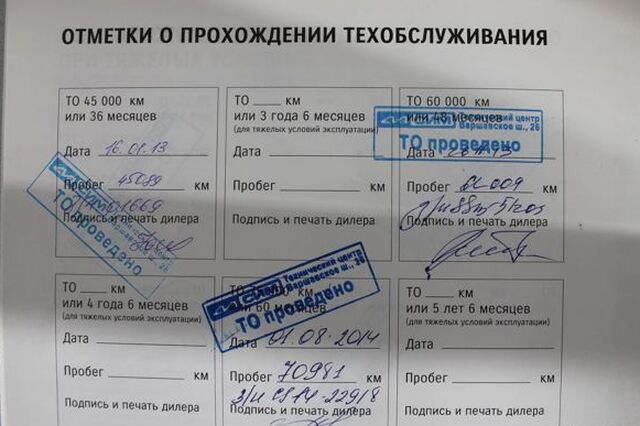 ОТМЕТКИ О ПРОХОЖДЕНИИ ТЕХОБСЛУЖИВАНИЯ
ТО 45 000 км
или 36 месяцев
Дата 16.01.13
Пробег 45089 км
Подпись и печать дилера
ТО проведено
ТО ____ км
или 3 года 6 месяцев
(для тяжелых условий эксплуатации)
Дата
Пробег км
Подпись и печать дилера
ТО 60 000 км
или 48 месяцев
Технический центр
Варшавское ш., 26
ТО проведено
Дата
Пробег км
Подпись и печать дилера
ТО ____ км
или 4 года 6 месяцев
(для тяжелых условий эксплуатации)
Дата
Пробег км
Подпись и печать дилера
Технический центр
Варшавское ш., 26
ТО проведено
или 60 месяцев
Дата 01.08.2014
Пробег 70981 км
З/Н
Подпись и печать дилера
ТО ____ км
или 5 лет 6 месяцев
(для тяжелых условий эксплуатации)
Дата
Пробег км
Подпись и печать дилера